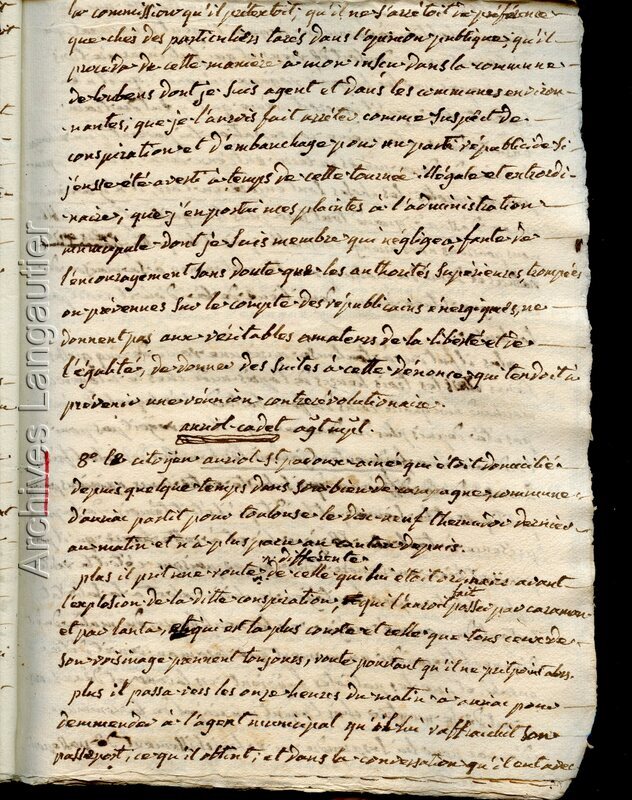 la commission qu'il prétextoit, qu'il ne s'arrétoit de préférence
que chés des particuliers tarés dans l'opinion publique; qu'il
proceda de cette manière à mon insçu dans la commune
de loubens dont je suis agent et dans les communes environ-
nantes; que je l'aurois fait arréter comme suspect de
conspiration et d'embauchage pour un parti républicide si
j'eusse été averti à temps de cette tournée illégale et extraordi-
naire; que j'en portai mes plaintes à l'administration
municipale dont je suis membre qui négligea, faute de
l'encouragement sans doute que les authorités supérieures, trompées
ou prévenues sur le compte des républicains énergiques, ne
donnent pas aux véritables amateurs de la liberté et de
l'égalité, de donner des suites à cette dénonce qui tendoit à
prévenir une réunion contrerévolutionaire.
auriol cadet agt mpl.
8.e le citoyen auriol St padoux ainé qui étoit domicilié
depuis quelque temps dans son bien de campagne, commune
d'auriac partit pour toulouse le dix neuf thermidor dernier
au matin et n'a plus paru depuis.
plus il prit une route différente de celle qui lui étoit avant
l'explosion de la ditte conspiration, qui l'auroit fait passer par caraman
et par lanta, et qui est la plus courte et celle que tous ceux de
son voisinage prennent toujours, route pourtant qu'il ne prit point alors.
plus il passa vers les onze heures du matin à auriac pour
demmender à l'agent municipal qu'il lui raffraichit son
passeport, ce qu'il obtint; et dans la conversation qu'il eut avec
Archives Langautier